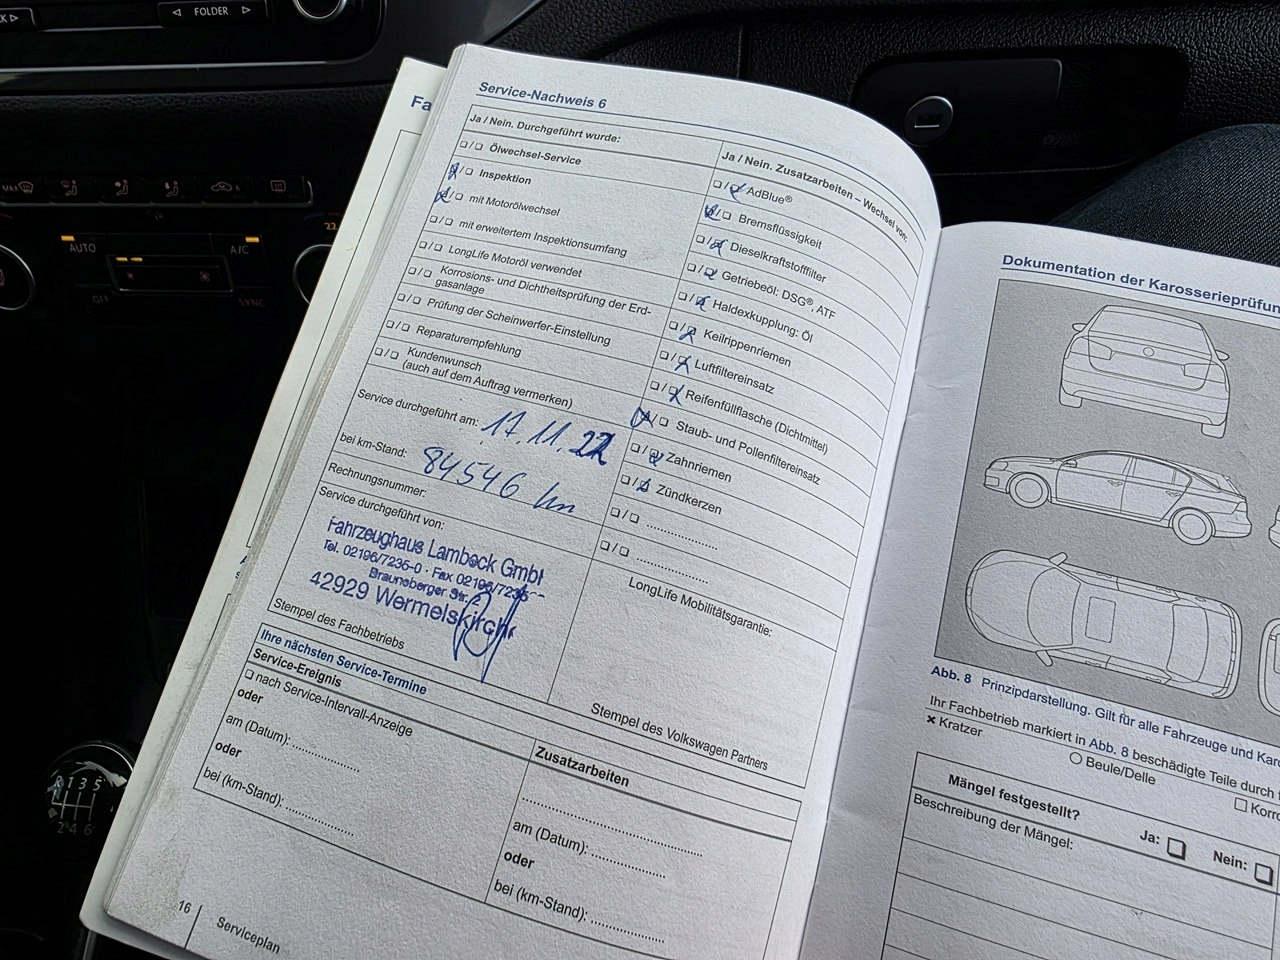 FOLDER
AUTO
A/C
OFF
SYNC
22
R 1 3 5
2 4 6
Fa
Service-Nachweis 6
Ja / Nein. Durchgeführt wurde:
❑/❑ Ölwechsel-Service
❑/❑ Inspektion
❑/❑ mit Motorölwechsel
❑/❑ mit erweitertem Inspektionsumfang
❑/❑ LongLife Motoröl verwendet
❑/❑ Korrosions- und Dichtheitsprüfung der Erd-
gasanlage
❑/❑ Prüfung der Scheinwerfer-Einstellung
❑/❑ Reparaturempfehlung
❑/❑ Kundenwunsch
(auch auf dem Auftrag vermerken)
Service durchgeführt am: 17.11.22
bei km-Stand: 84546 km
Rechnungsnummer:
Service durchgeführt von:
Fahrzeughaus Lambeck GmbH
Tel. 02196/7235-0 · Fax 02196/7235-
Braunsberger Str. 2
42929 Wermelskirch
Stempel des Fachbetriebs
Ja / Nein. Zusatzarbeiten – Wechsel von:
❑/❑ AdBlue®
❑/❑ Bremsflüssigkeit
❑/❑ Dieselkraftstofffilter
❑/❑ Getriebeöl: DSG®, ATF
❑/❑ Haldexkupplung: Öl
❑/❑ Keilrippenriemen
❑/❑ Luftfiltereinsatz
❑/❑ Reifenfüllflasche (Dichtmittel)
❑/❑ Staub- und Pollenfiltereinsatz
❑/❑ Zahnriemen
❑/❑ Zündkerzen
❑/❑ ....................
❑/❑ ....................
LongLife Mobilitätsgarantie:
Stempel des Volkswagen Partners
Ihre nächsten Service-Termine
Service-Ereignis
❑ nach Service-Intervall-Anzeige
oder
am (Datum): ...................
oder
bei (km-Stand): ...................
Zusatzarbeiten
.................................................
am (Datum): ....................
oder
bei (km-Stand): ....................
16
Serviceplan
Dokumentation der Karosserieprüfun
Abb. 8 Prinzipdarstellung. Gilt für alle Fahrzeuge und Karo
Ihr Fachbetrieb markiert in Abb. 8 beschädigte Teile durch f
✘ Kratzer
○ Beule/Delle
❑ Korro
Mängel festgestellt?
Ja: ❑
Nein: ❑
Beschreibung der Mängel: